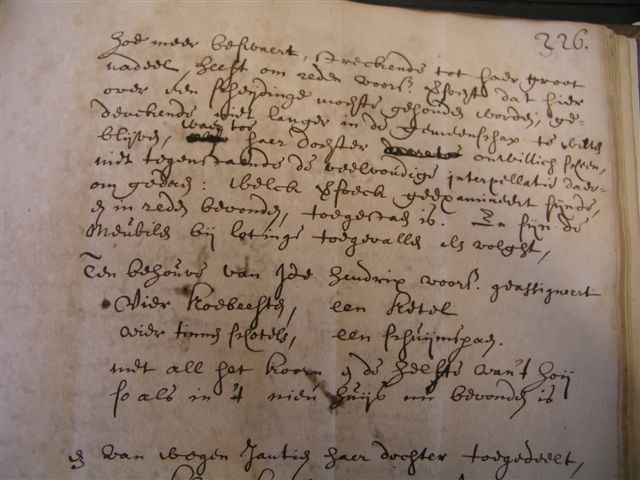 226.
hoe meer beswaert, streckende tot haer groot
nadeel, heeft om reden voors. versocht dat hier
over een scheydinge mochte gehouden worden, ge-
denckende niet langer in de gemeenschap te willen
blijven, waer toe haer dochter onwillich scheen,
niet tegenstaende de veelvoudige interpellatie daer-
om gedaen: Welck versoeck geexamineert sijnde,
en in reden bevonden, toegestaen is. En sijn de
Meubilen bij lotinge toegevallen als volght,
Ten behouve van Ide Hendrix voors. geassigneert
Vier Koebeesten, een Ketel
vier tinne schotels, een schuijmspaen.
met all het Koorn en de helfte van't hoij
so als in 't nieu huijs nu bevonden is
en van wegen Jantien haer dochter toegedeelt,